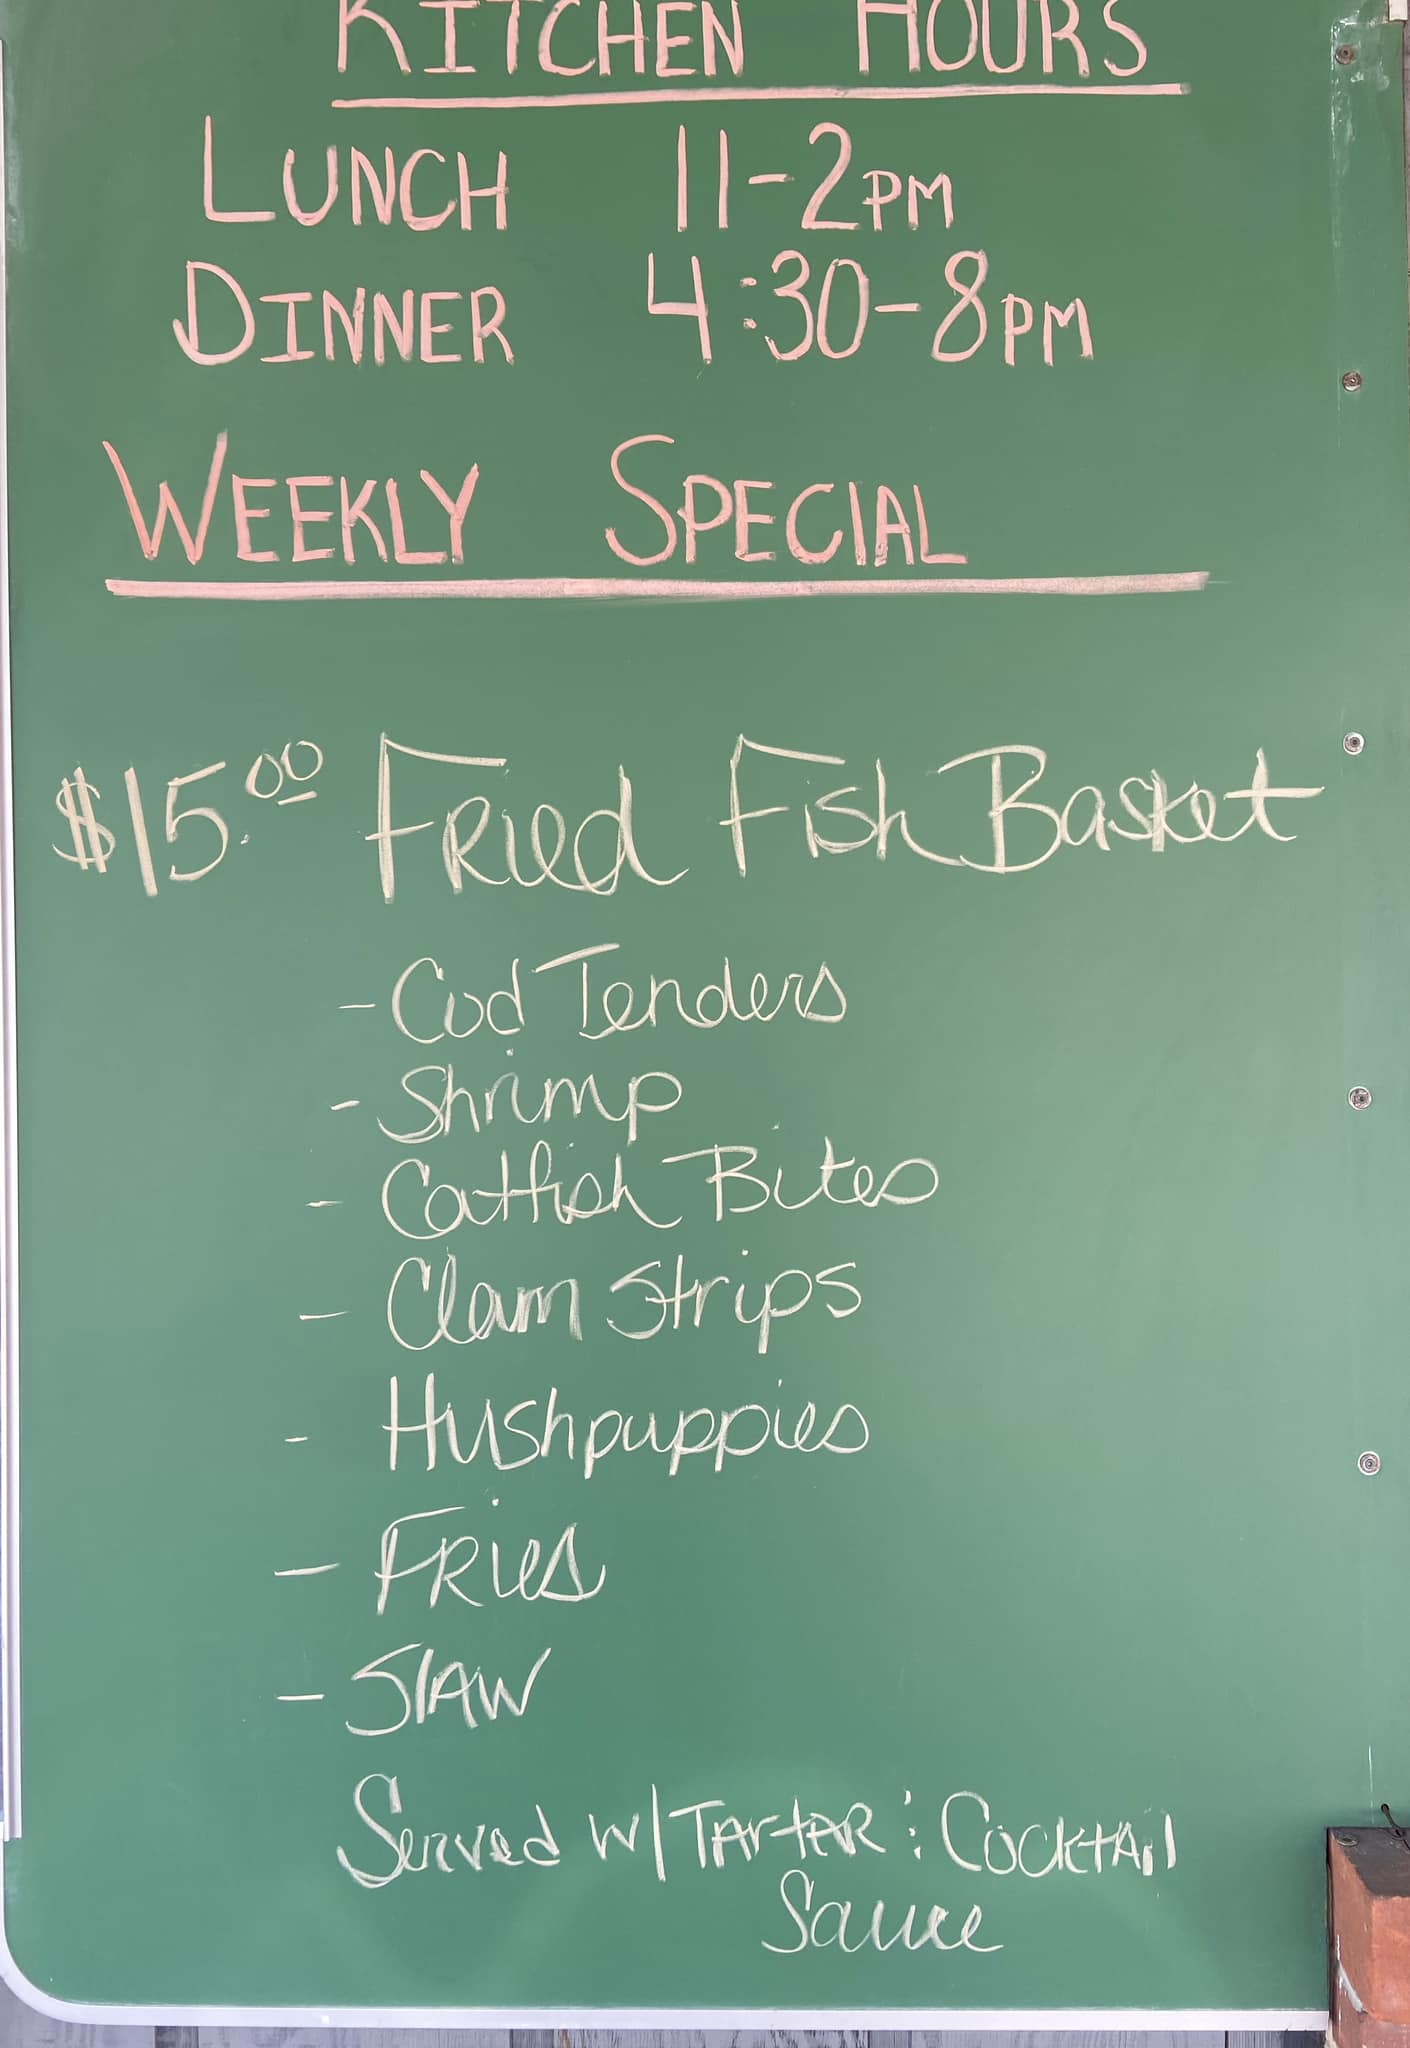 KITCHEN HOURS
LUNCH 11-2PM
DINNER 4:30-8PM
WEEKLY SPECIAL
$15.00 Fried Fish Basket
- Cod Tenders
- Shrimp
- Catfish Bites
- Clam Strips
- Hushpuppies
- Fries
- Slaw
Served w/ Tartar & Cocktail
Sauce